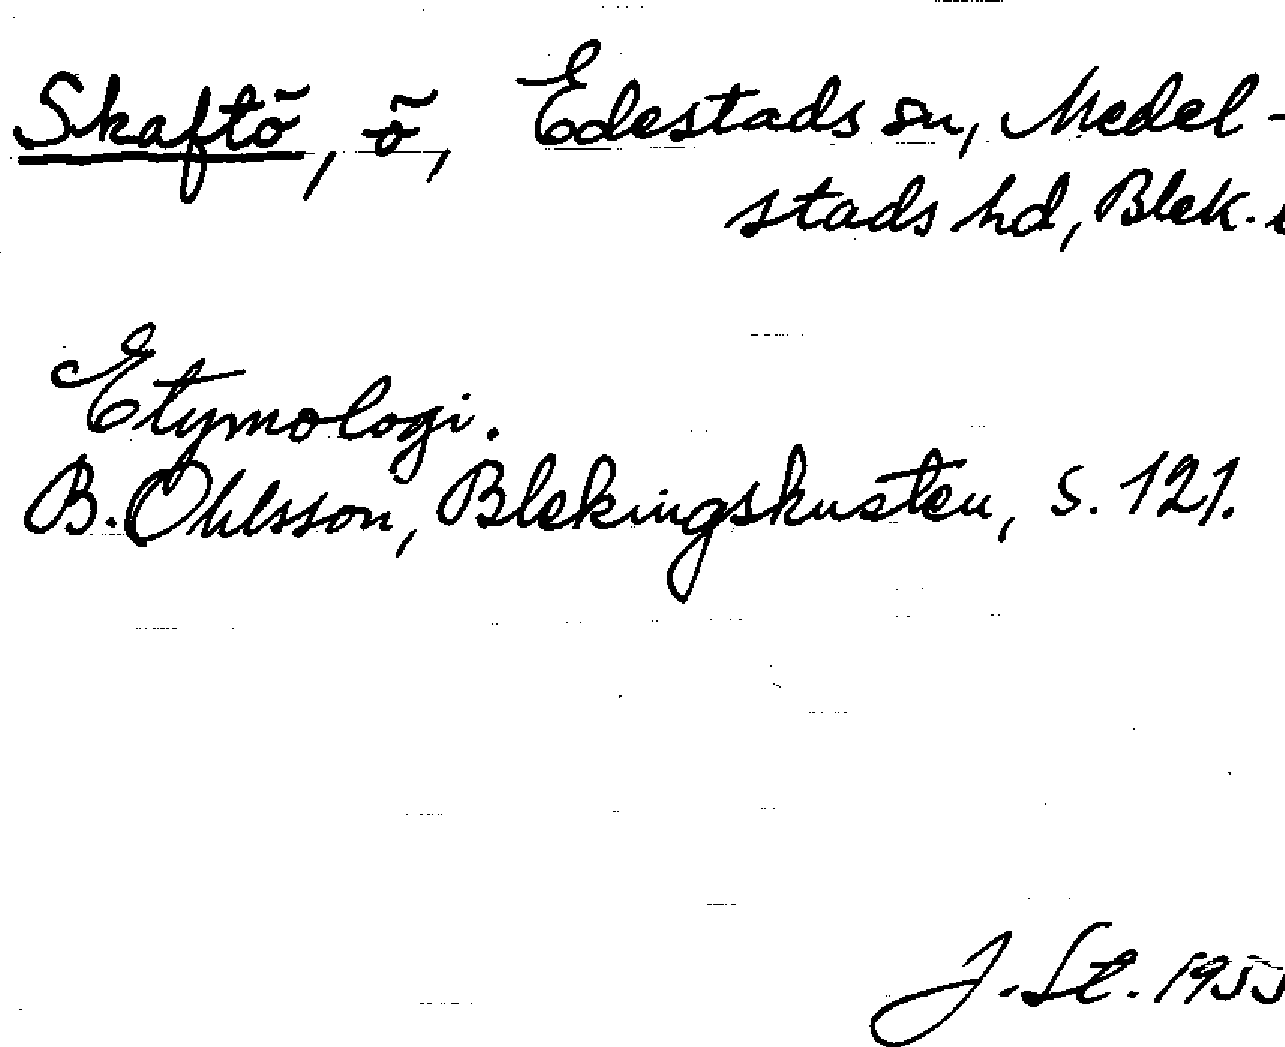 Skaftö, ö, Edestads sn, Medel-
stads hd, Blek.
Etymologi.
B. Ohlsson, Blekingskusten, s. 121.
J. St. 1955